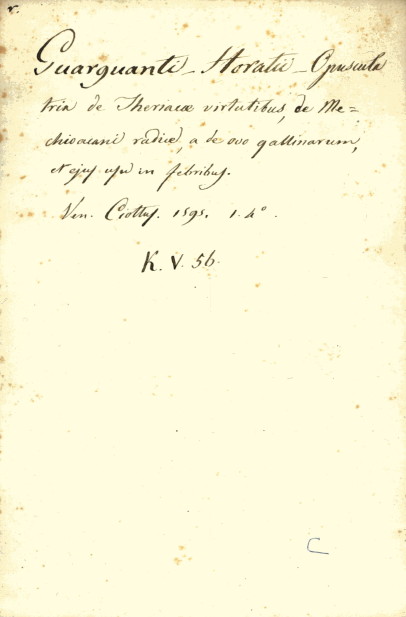 r.
Guarguanti - Horatii - Opuscula
tria de Theriacæ virtutibus, de Me=
chioacani radice, a de ovo gallinarum,
et ejus usu in febribus.
Ven. Ciottus. 1595. 1. 4°.
K. V. 56.
C